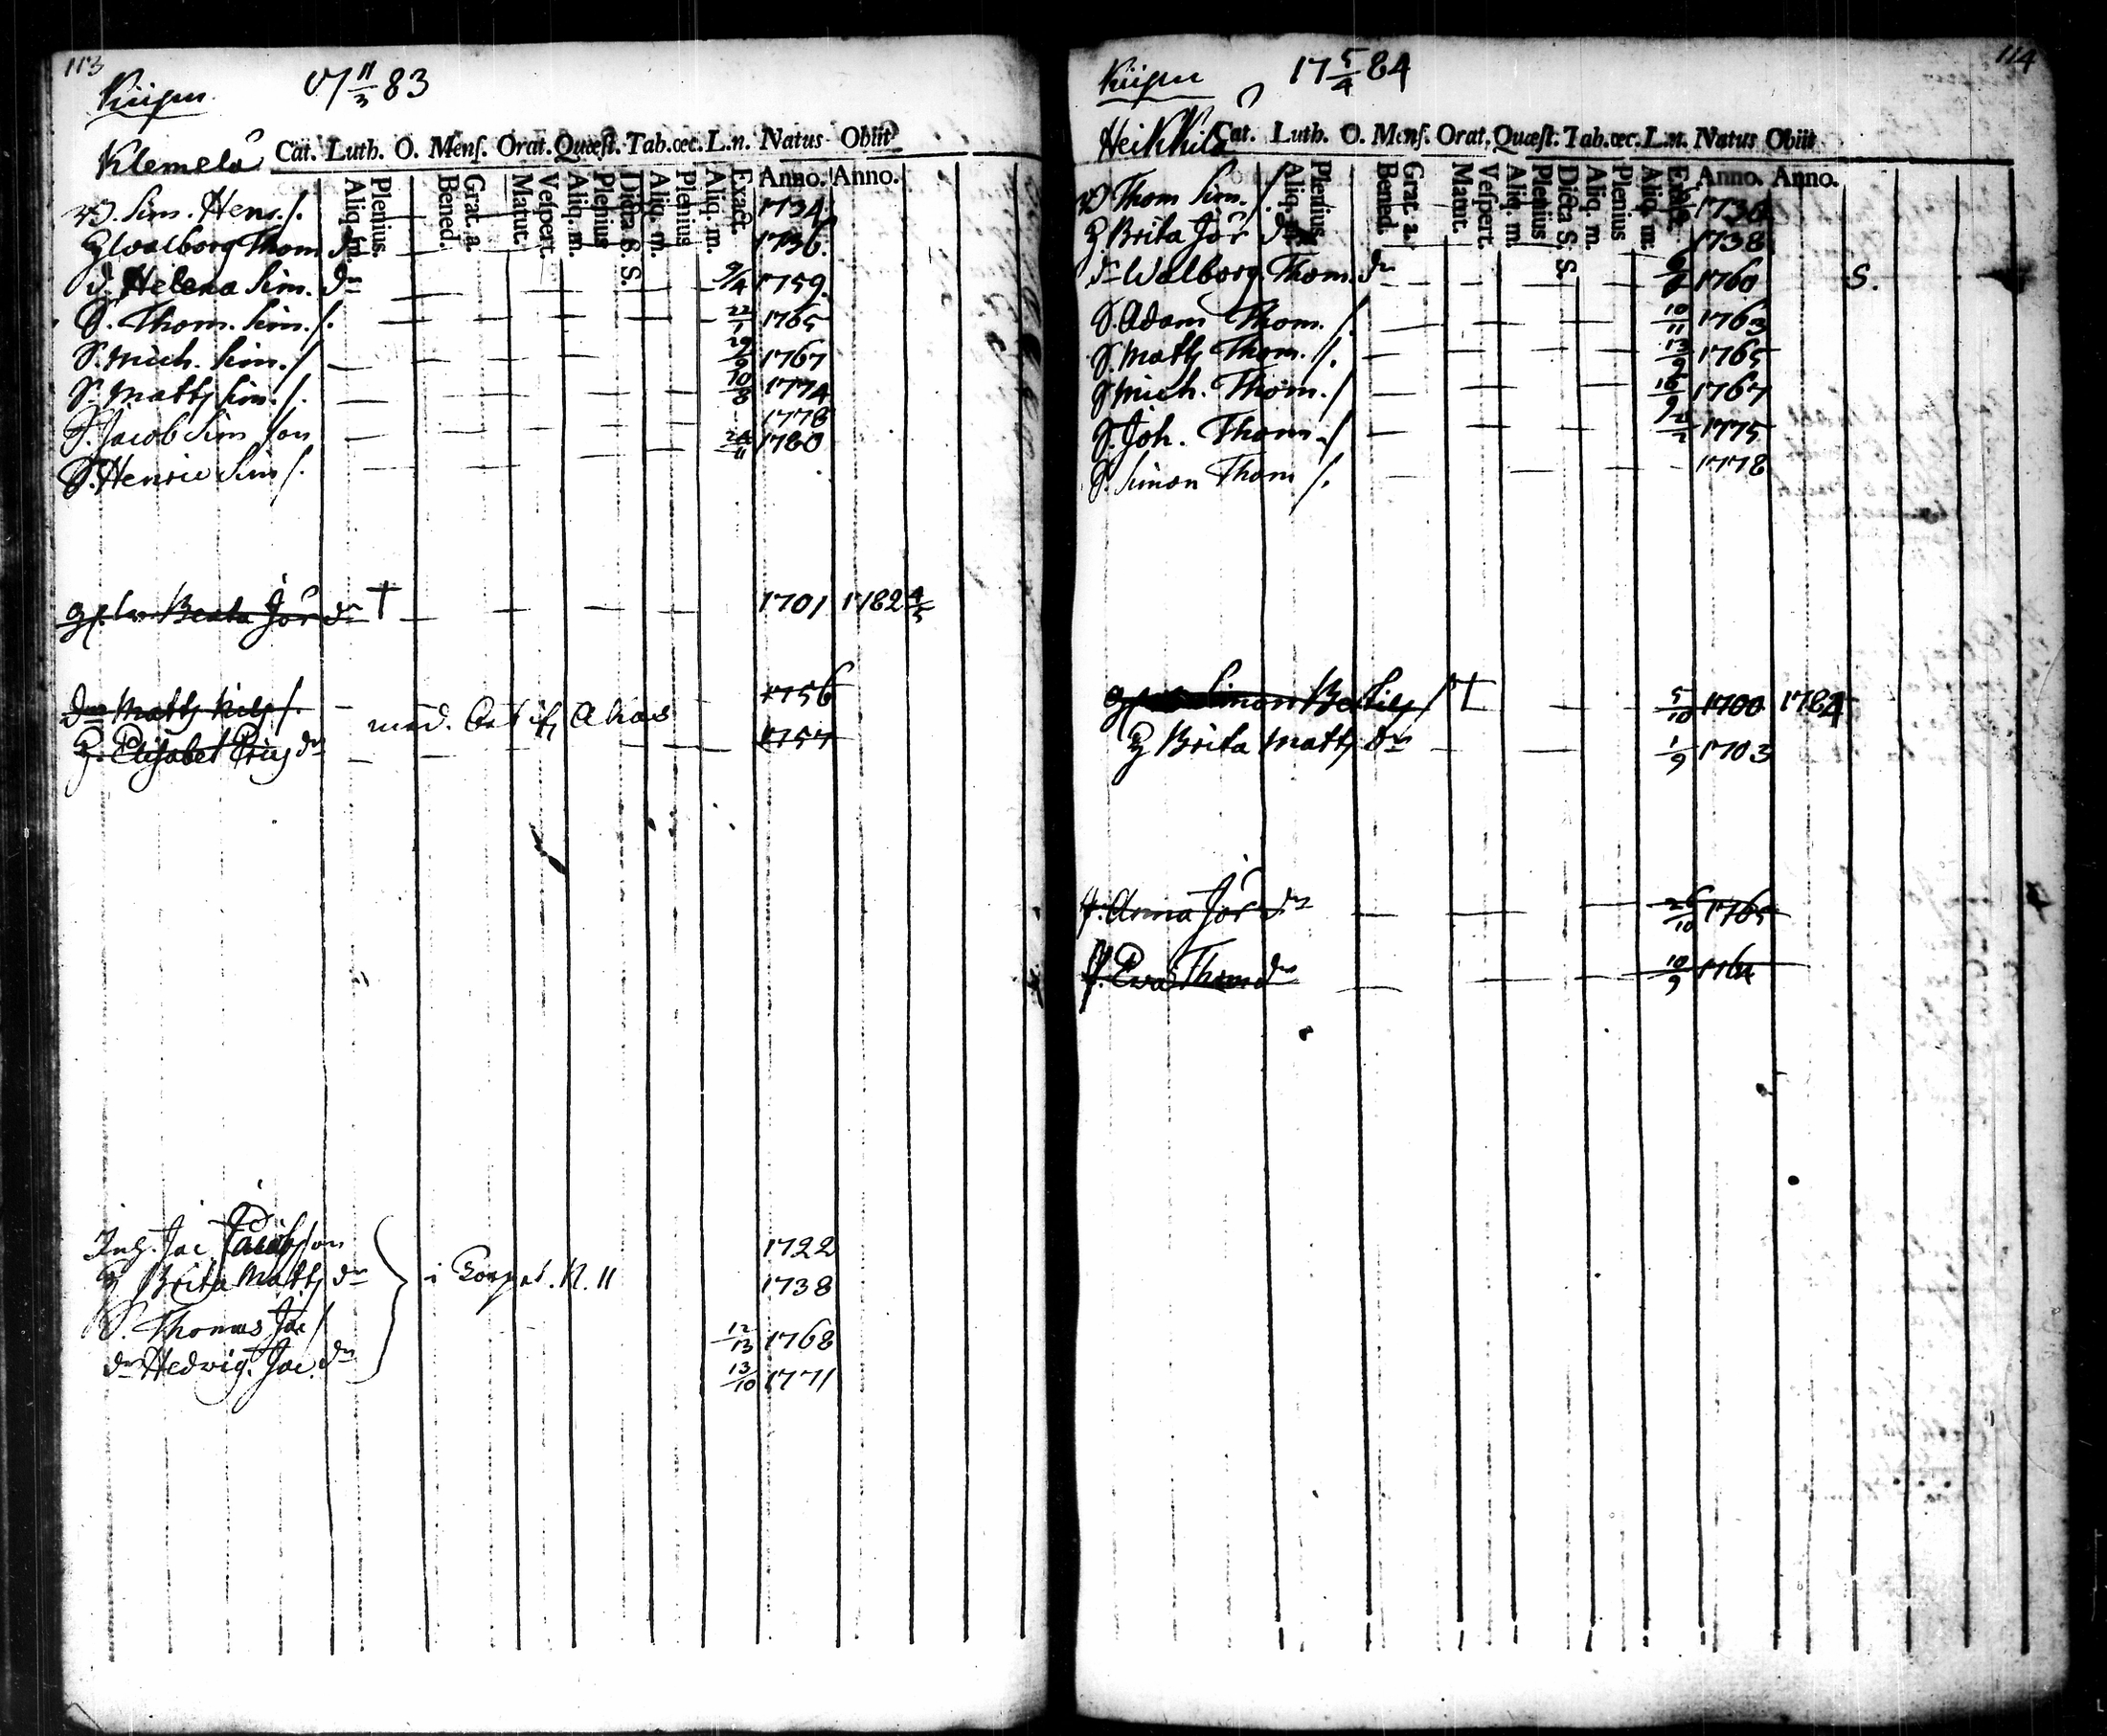 113
17 11/3 83
Klemelä Cat. Luth. O. Mens. Orat. Quæst. Tab. œc. L.n. Natus Obiit
Aliq. m. Plenius. Bened. Grat. a. Matut. Vespert. Aliq. m. Plenius Dicta S. S. Aliq. m. Plenius Aliq. m. Exact. Anno. Anno.
Sim. Hens. s. 1734
H Walborg Thom dr 1736.
d. Helena Sim. dr 9/4 1759.
S. Thom. Sim. s. 22/1 1765
S. Mich. Sim. s. 29/9 1767
S. Matts Sim. s. 10/8 1774
S. Jacob Sim son 1778
S. Henric Sim s. 1780
Beata Jör dr † 1701 1782 4/5
Matts Nils s. 1756
H. Elisabet Eriks dr 1757
Inh. Jac Jacobsson 1722
H Brita Matts dr i N. 11 1738
S. Thomas Jac s 12/13 1768
dr Hedvig. Jac. dr 13/10 1771
114
17 5/4 84
Heikkilä Cat. Luth. O. Mens. Orat. Quæst. Tab. œc. L.n. Natus Obiit
Aliq. m. Plenius. Bened. Grat. a. Matut. Vespert. Aliq. m. Plenius Dicta S. S. Aliq. m. Plenius Aliq. m. Exact. Anno. Anno.
Thom Sim. s. 1736
H Brita Jör dr 1738
dr Walborg. Thom. dr 1760 S.
S. Adam Thom. s. 10/11 1763
S. Matts Thom. s. 13/9 1765
S Mich. Thom. s. 16/9 1767
S. Joh. Thom. s 12/2 1775
S. Simon Thom s. 1778
Simon Bertils s † 5/10 1700 1784
H Brita Matts dr 1/9 1703
Anna Jör dr 26/10 1765
Eva Thom dr 10/9